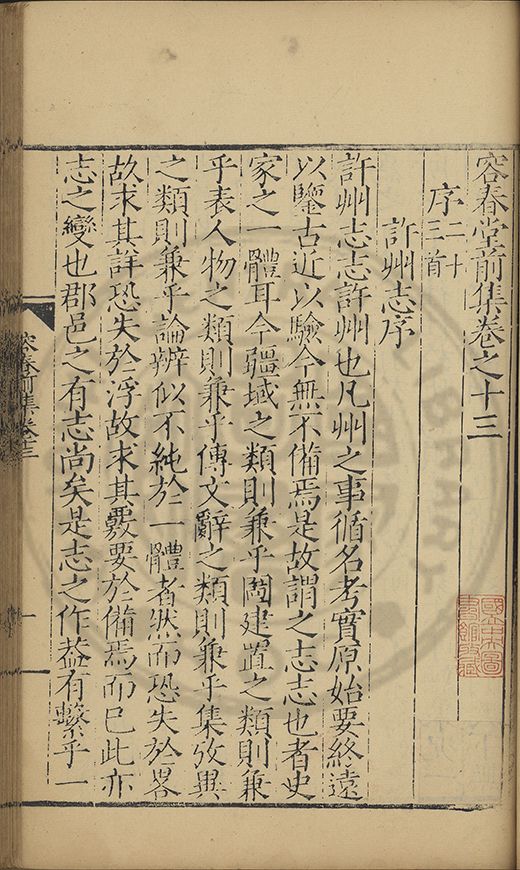 容春堂前集卷之十三
序二十三首
許州志序
許州志志許州也凡州之事循名考實原始要終遠
以鑒古近以驗今無不備焉是故謂之志志也者史
家之一體耳今疆域之類則兼乎圖建置之類則兼
乎表人物之類則兼乎傳文辭之類則兼乎集攷異
之類則兼乎論辨似不純於一體者然而恐失於畧
故求其詳恐失於浮故求其覈要於備焉而已此亦
志之變也郡邑之有志尚矣是志之作葢有繫乎一
容春前集卷十三
一